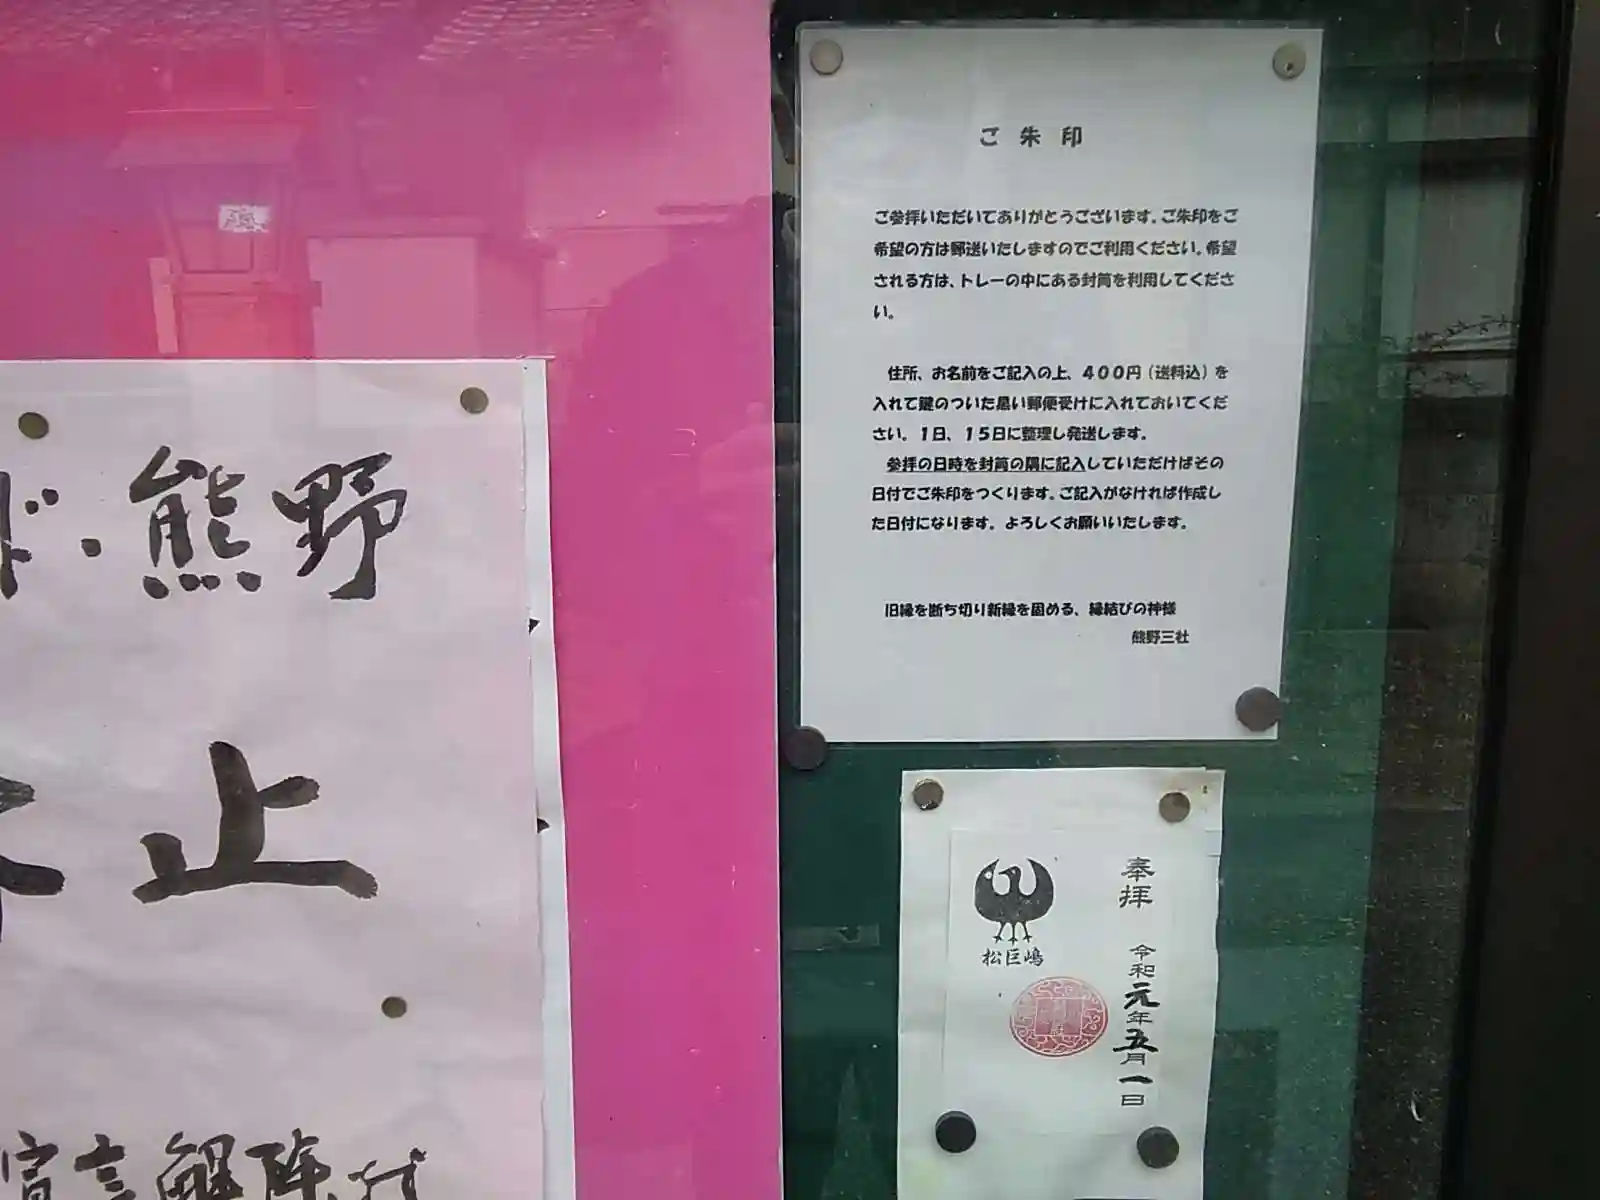 ド・熊野
止
宣言解除
ご朱印
ご参拝いただいてありがとうございます。ご朱印をご
希望の方は郵送いたしますのでご利用ください。希望
される方は、トレーの中にある封筒を利用してくださ
い。
住所、お名前をご記入の上、400円（送料込）を
入れて鍵のついた黒い郵便受けに入れておいてくだ
さい。1日、15日に整理し発送します。
参拝の日時を封筒の隅に記入していただけばその
日付でご朱印をつくります。ご記入がなければ作成し
た日付になります。よろしくお願いいたします。
旧縁を断ち切り新縁を固める、縁結びの神様
熊野三社
奉拝
令和元年五月一日
松巨嶋